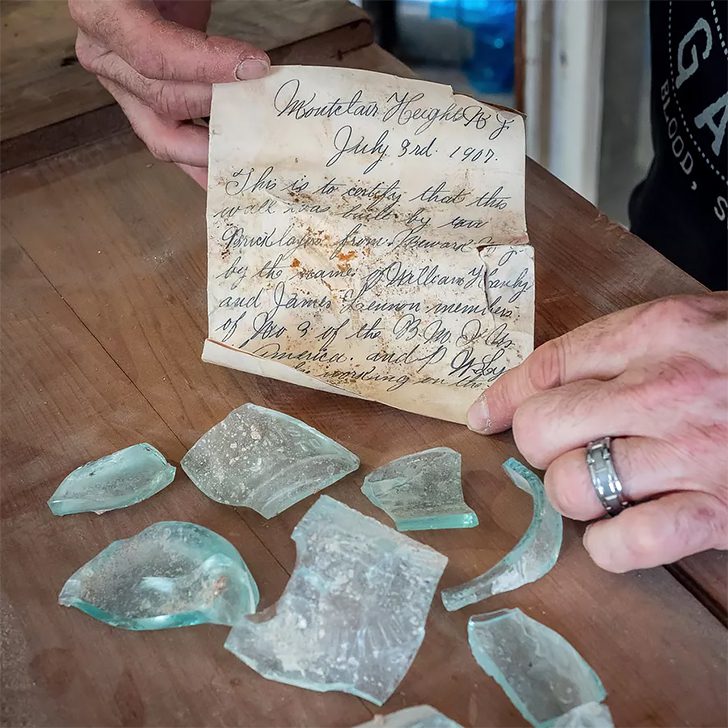 Montclair Heights N J
July 3rd. 1907.
This is to certify that this
wall was built by two
Bricklayers from Newark N J
by the names of William Hanly
and James Lennon members
of No 3 of the B. M. I. U. of
America. and
working on the
GA
BLOOD, S